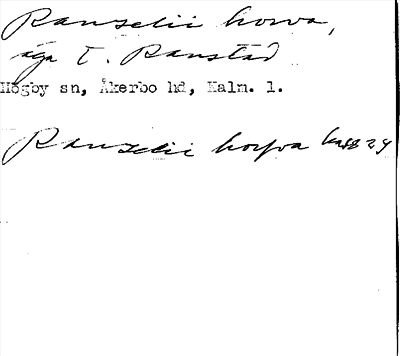 Ranselii horva,
äga t. Ranstad
Högby sn, Åkerbo hd, Kalm. l.
Ranselii horfva